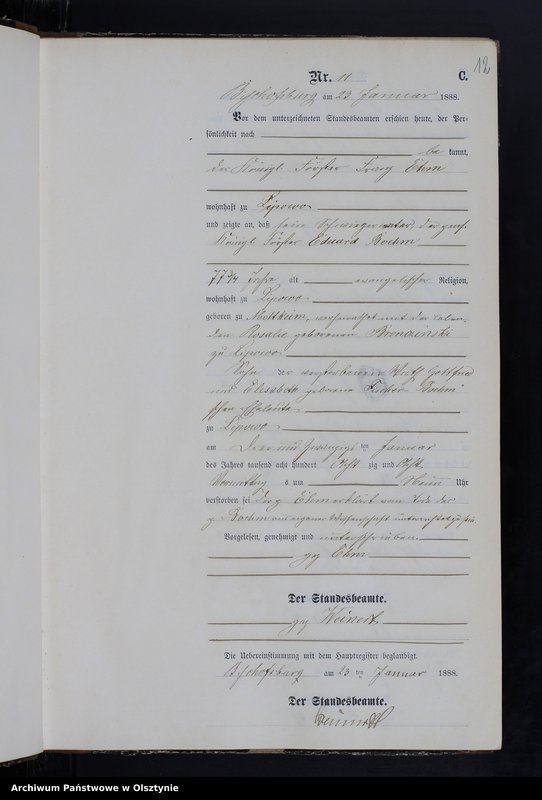 12
Nr. 11 C.
Bischofsburg am 23 Januar 1888.
Vor dem unterzeichneten Standesbeamten erschien heute, der Per-
sönlichkeit nach
be kannt,
der Königl Förster Ehm
wohnhaft zu Lipowo
und zeigte an, daß sein Schwiegervater, der
Königl Förster Eduard Boehm
77¾ Jahre alt evangelischer Religion,
wohnhaft zu Lipowo
geboren zu verheirathet mit der
Rosalie geborenen
zu Lipowo
Sohn des verstorbenen Gottfried
und Elisabeth geborene Boehm
schen Eheleute
zu Lipowo
am Drei und zwanzigs ten Januar
des Jahres tausend acht hundert Acht zig und Acht
Vormittag s um Neun Uhr
verstorben sei Ehm erklärt vom Tode des
p. Boehm aus eigener Wissenschaft unterrichtet zu sein.
Vorgelesen, genehmigt und unterschrieben
gez Ehm
Der Standesbeamte.
gez Weinert
Die Uebereinstimmung mit dem Hauptregister beglaubigt.
Bischofsburg am 23 ten Januar 1888.
Der Standesbeamte.
Weinert
Archiwum Państwowe w Olsztynie